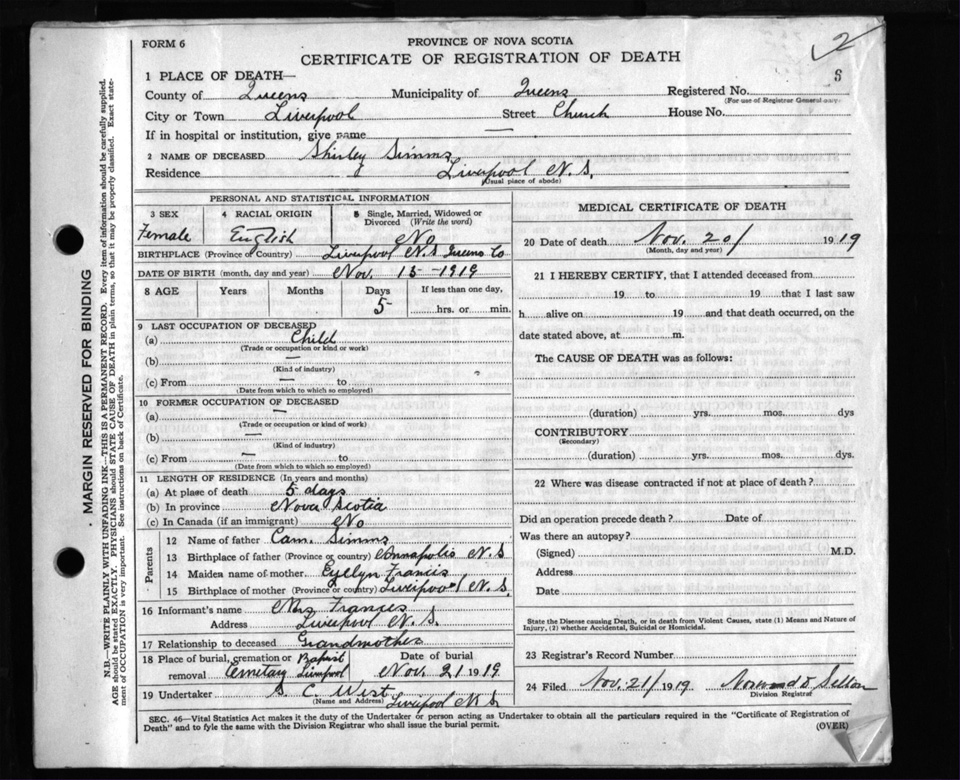 2
FORM 6
PROVINCE OF NOVA SCOTIA
CERTIFICATE OF REGISTRATION OF DEATH
1 PLACE OF DEATH—
County of Queens Municipality of Queens Registered No. 6
(For use of Registrar General only
City or Town Liverpool Street Church House No.
If in hospital or institution, give name —
2 NAME OF DECEASED Shirley Simms
Residence Liverpool N.S.
(Usual place of abode)
PERSONAL AND STATISTICAL INFORMATION
3 SEX 4 RACIAL ORIGIN 5 Single, Married, Widowed or Divorced (Write the word)
Female English No
BIRTHPLACE (Province or Country) Liverpool N.S Queens Co
DATE OF BIRTH (month, day and year) Nov. 15-1919
8 AGE Years Months Days If less than one day,
5 hrs. or min.
9 LAST OCCUPATION OF DECEASED
(a) Child
(Trade or occupation or kind or work)
(b) —
(Kind of industry)
(c) From — to
(Date from which to which so employed)
10 FORMER OCCUPATION OF DECEASED
(a) —
(Trade or occupation or kind of work)
(b) —
(Kind of industry)
(c) From — to
(Date from which to which so employed)
11 LENGTH OF RESIDENCE (In years and months)
(a) At place of death 5 days
(b) In province Nova Scotia
(c) In Canada (if an immigrant) No
Parents
12 Name of father Cam. Simms
13 Birthplace of father (Province or country) Annapolis N.S
14 Maiden name of mother Evelyn Francis
15 Birthplace of mother (Province or country) Liverpool N.S.
16 Informant's name Mrs Francis
Address Liverpool N.S.
17 Relationship to deceased Grandmother
18 Place of burial, cremation or removal Baptist Cemetary Liverpool Date of burial Nov. 21 1919
19 Undertaker S. C. West
(Name and Address) Liverpool N S
MEDICAL CERTIFICATE OF DEATH
20 Date of death Nov. 20/ 1919
(Month, day and year)
21 I HEREBY CERTIFY, that I attended deceased from
19 to 19 that I last saw
h alive on 19 and that death occurred, on the
date stated above, at m.
The CAUSE OF DEATH was as follows:
(duration) yrs. mos. dys
CONTRIBUTORY
(Secondary)
(duration) yrs. mos. dys.
22 Where was disease contracted if not at place of death?
Did an operation precede death? Date of
Was there an autopsy?
(Signed) M.D.
Address
Date
State the Disease causing Death, or in death from Violent Causes, state (1) Means and Nature of
Injury, (2) whether Accidental, Suicidal or Homicidal.
23 Registrar's Record Number
24 Filed Nov. 21/ 1919
Division Registrar
SEC. 46—Vital Statistics Act makes it the duty of the Undertaker or person acting as Undertaker to obtain all the particulars required in the "Certificate of Registration of
Death" and to fyle the same with the Division Registrar who shall issue the burial permit. (OVER)
MARGIN RESERVED FOR BINDING
N.B.—WRITE PLAINLY WITH UNFADING INK—THIS IS A PERMANENT RECORD. Every item of information should be carefully supplied.
AGE should be stated EXACTLY. PHYSICIANS should STATE CAUSE OF DEATH in plain terms, so that it may be properly classified. Exact state-
ment of OCCUPATION is very important. See instructions on back of Certificate.